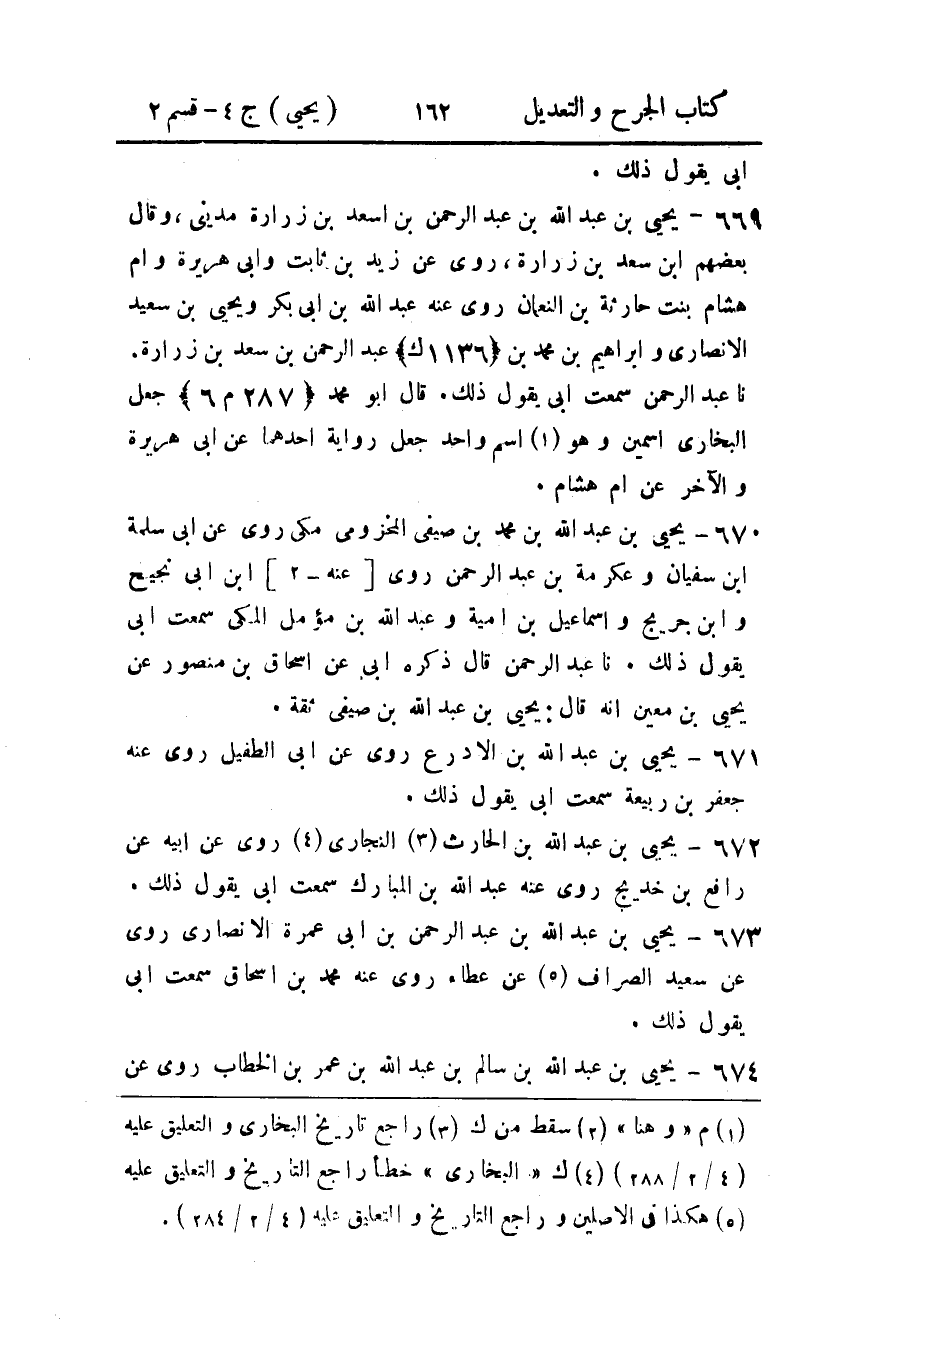 كتاب الجرح والتعديل ١٦٢ (يحيى) ج ٤ - قسم ٢
ابى يقول ذلك .
٦٦٩ - يحيى بن عبد الله بن عبد الرحمن بن اسعد بن زرارة مدينى ، وقال
بعضهم ابن سعد بن زرارة ، روى عن زيد بن ثابت وابى هريرة وام
هشام بنت حارثة بن النعمان روى عنه عبد الله بن ابى بكر ويحيى بن سعيد
الانصارى و ابراهيم بن محمد بن ﴿١١٣٦ ك﴾ عبد الرحمن بن سعد بن زرارة .
نا عبد الرحمن سمعت ابى يقول ذلك . قال ابو محمد ﴿٢٨٧ م ٦﴾ جعل
البخارى اسمين و هو (١) اسم واحد جعل رواية احدهما عن ابى هريرة
و الآخر عن ام هشام .
٦٧٠ - يحيى بن عبد الله بن محمد بن صيفى المخزومى مكى روى عن ابى سلمة
ابن سفيان و عكرمة بن عبد الرحمن روى [ عنه - ٢ ] ابن ابى نجيح
و ابن جريج و اسماعيل بن امية و عبد الله بن مؤمل المكى سمعت ابى
يقول ذلك . نا عبد الرحمن قال ذكره ابى عن اسحاق بن منصور عن
يحيى بن معين انه قال : يحيى بن عبد الله بن صيفى ثقة .
٦٧١ - يحيى بن عبد الله بن الادرع روى عن ابى الطفيل روى عنه
جعفر بن ربيعة سمعت ابى يقول ذلك .
٦٧٢ - يحيى بن عبد الله بن الحارث (٣) النجارى (٤) روى عن ابيه عن
رافع بن خديج روى عنه عبد الله بن المبارك سمعت ابى يقول ذلك .
٦٧٣ - يحيى بن عبد الله بن عبد الرحمن بن ابى عمرة الانصارى روى
عن سعيد الصراف (٥) عن عطاء روى عنه محمد بن اسحاق سمعت ابى
يقول ذلك .
٦٧٤ - يحيى بن عبد الله بن سالم بن عبد الله بن عمر بن الخطاب روى عن
(١) م « و هنا » (٢) سقط من ك (٣) راجع تاريخ البخارى و التعليق عليه
( ٤ / ٢ / ٢٨٨ ) (٤) ك « البخارى » خطأ راجع التاريخ و التعليق عليه
(٥) هكذا فى الاصلين و راجع التاريخ و التعليق عليه ( ٤ / ٢ / ٢٨٤ ) .